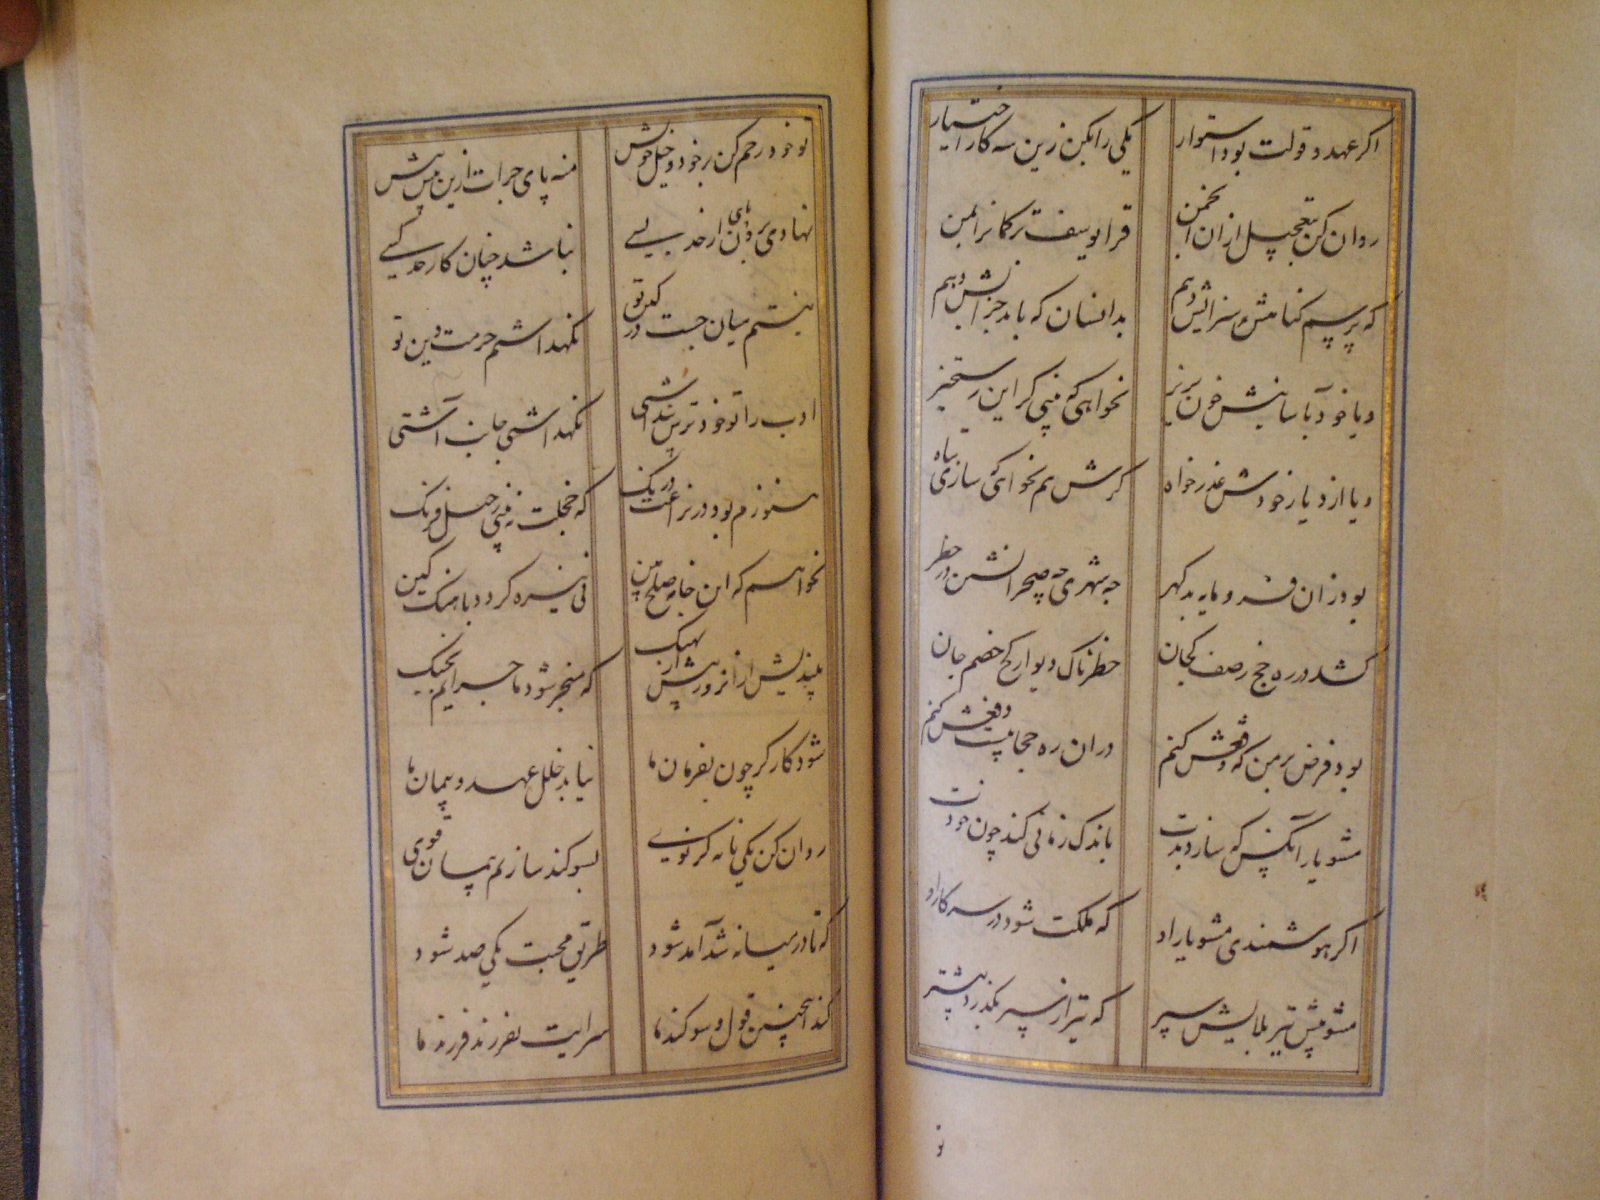 اکر عهد و قولت بود استوار یکی را بکن زین سه کار اختیار
روان کن بتعجیل ازان انجمن قرا یوسف ترکمانرا بمن
که پرسم کناهش سزایش دهم بدانسان که باید جزایش دهم
و یا خود بآسانیش خون بریز نخواهی که بینی کر این رستخیز
و یا از دیار خودش عذر خواه کرش هم نخواهی که سازی تباه
بود زان فرومایه بدکهر چه شهری چه صحرانشین در خطر
کشد در ره حج رصف کجان خطرناک دیوار کج خصم جان
بود فرض بر من که دفعش کنم دران ره حجابیست رفعش کنم
مشو یار آنکس که سازد بدت باندک زمانی کند چون خودت
اکر هوشمندی مشو یار او که ملکت شود در سر کار او
مشو پیش تیر بلایش سپر که تیر از سپر بکذرد بیشتر
تو
تو خود رحم کن بر خود و خیل خویش منه پای جرات ازین بیش پیش
نهادی برون پای از حد بسی نباشد چنان کار حد کسی
نبستم میان چست در کین تو نکهداشتم حرمت دین تو
ادب را تو خود ترس پنداشتی نکهداشتی جانب آشتی
هنوزم بود در نزاعت درنک که خجلت نه بینی ز خیل فرنک
نخواهم که این خانه صلح بین نی نیزه کردد باهنک کین
بیندیش ازانروز پیش از نهیک که منجر شود ماجرایم بجنک
شود کار کر چون بفرمان ما نیابد خلل عهد و پیمان ما
روان کن یکی نامه کر نوی بسوکند سازیم پیمان قوی
که تا در میانه شد آمد شود طریق محبت یکی صد شود
کند اینچنین قول و سوکند ما سرایت بفرزند فرزند ما